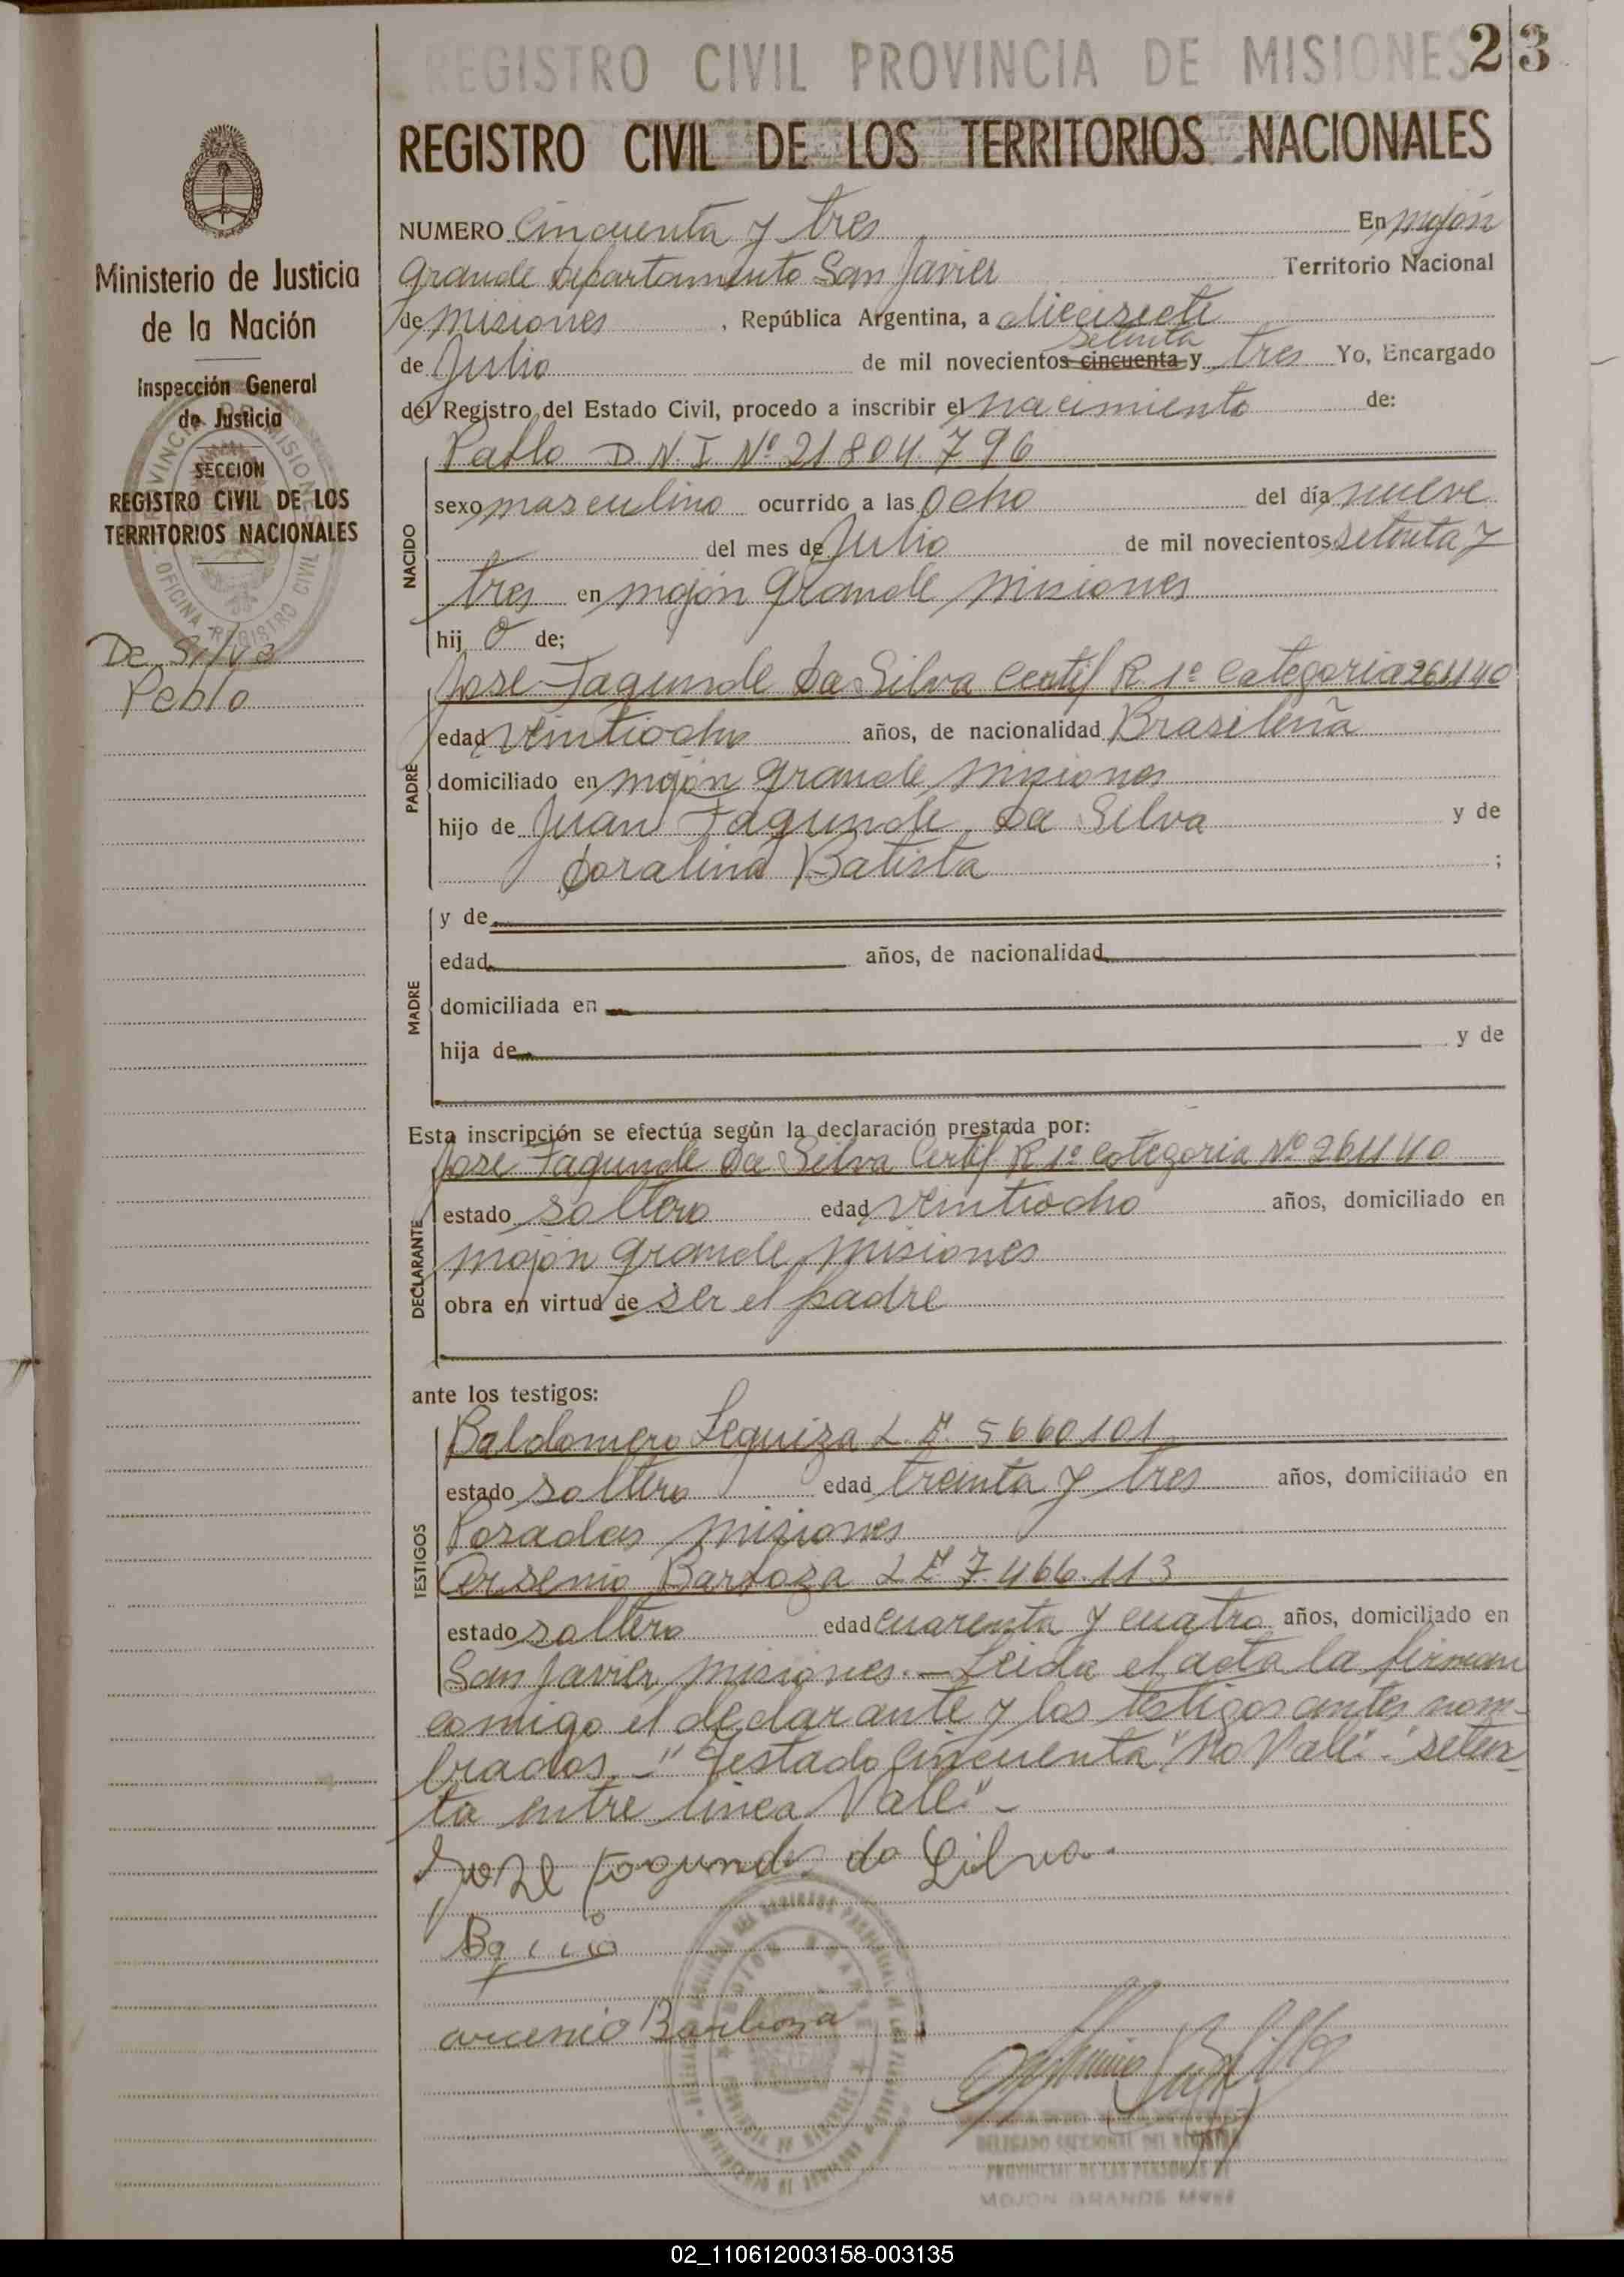 REGISTRO CIVIL PROVINCIA DE MISIONES
23
REGISTRO CIVIL DE LOS TERRITORIOS NACIONALES
Ministerio de Justicia
de la Nación
Inspección General
de Justicia
SECCION
REGISTRO CIVIL DE LOS
TERRITORIOS NACIONALES
De Silva
Pablo
NUMERO Cincuenta y tres En mojón
grande departamento San Javier Territorio Nacional
de misiones, República Argentina, a diecisiete
setenta
de Julio de mil novecientos cincuenta y tres Yo, Encargado
del Registro del Estado Civil, procedo a inscribir el nacimiento de:
NACIDO
Pablo D.N.I Nº 21804796
sexo masculino ocurrido a las ocho del día nueve
del mes de Julio de mil novecientos setenta y
tres en mojón grande misiones
hij o de;
PADRE
Jose Fagunde Da Silva Certif R 1º Categoria 261140
edad veintiocho años, de nacionalidad Brasileña
domiciliado en mojón grande misiones
hijo de Juan Fagunde Da Silva y de
Doralina Batista ;
MADRE
y de
edad años, de nacionalidad
domiciliada en
hija de y de
Esta inscripción se efectúa según la declaración prestada por:
DECLARANTE
Jose Fagunde Da Silva Certif R 1º Categoria Nº 261140
estado soltero edad veintiocho años, domiciliado en
mojón grande misiones
obra en virtud de ser el padre
ante los testigos:
TESTIGOS
Baldomero Leguiza L.E. 5660101
estado soltero edad treinta y tres años, domiciliado en
Posadas misiones
Arsenio Barboza L E 7.466.113
estado soltero edad cuarenta y cuatro años, domiciliado en
San Javier misiones.- Leida el acta la firman
comigo el declarante y los testigos antes nom-
brados.- "Testado cincuenta "No Vale". "seten-
ta entre linea Vale".-
Jose fagundes da Silva.
arcenio Barboza
DELEGADO SECCIONAL DEL REGISTRO
PROVINCIAL DE LAS PERSONAS DE
MOJON GRANDE Mnes
02_110612003158-003135